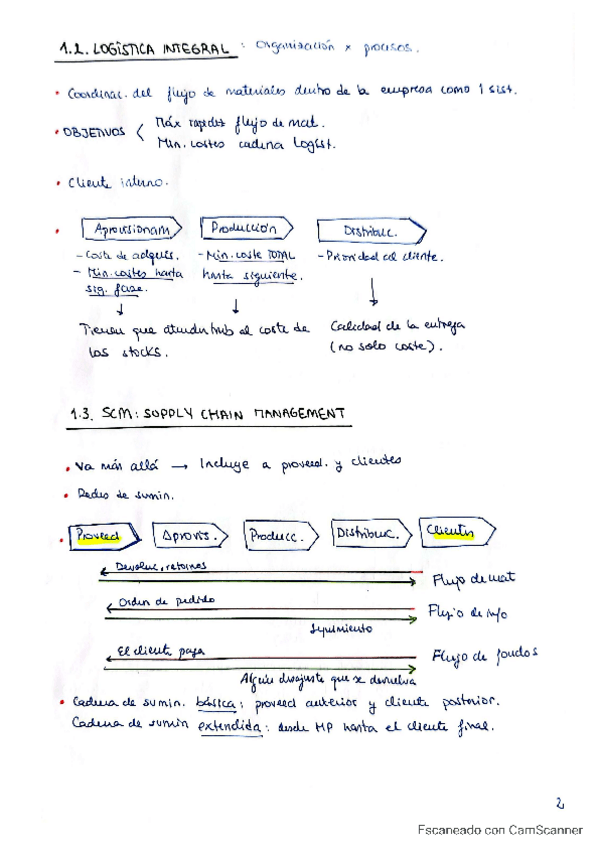 1.2. LOGÍSTICA INTEGRAL : Organización x procesos.
• Coordinac. del flujo de materiales dentro de la empresa como 1 sist.
• OBJETIVOS < Máx rapidez flujo de mat.
Min. costes cadena Logíst.
• Cliente interno.
• Aprovisionam Producción Distribuc.
- Coste de adquis. - Min. coste TOTAL - Prioridad al cliente.
- Min. costes hasta hasta siguiente.
sig. fase.
↓ ↓ ↓
Tienen que atender tmb al coste de Calidad de la entrega
los stocks. (no solo coste).
1.3. SCM: SUPPLY CHAIN MANAGEMENT
• Va más allá → Incluye a proveed. y clientes
• Redes de sumin.
• Proveed Aprovis. Producc. Distribuc. Clientes
Devoluc, retornos
Flujo de mat
Orden de pedido
Flujo de info
Seguimiento
El cliente paga
Flujo de fondos
Algún desajuste que se devuelva
• Cadena de sumin. básica: proveed anterior y cliente posterior.
Cadena de sumin extendida: desde MP hasta el cliente final.
2
Escaneado con CamScanner